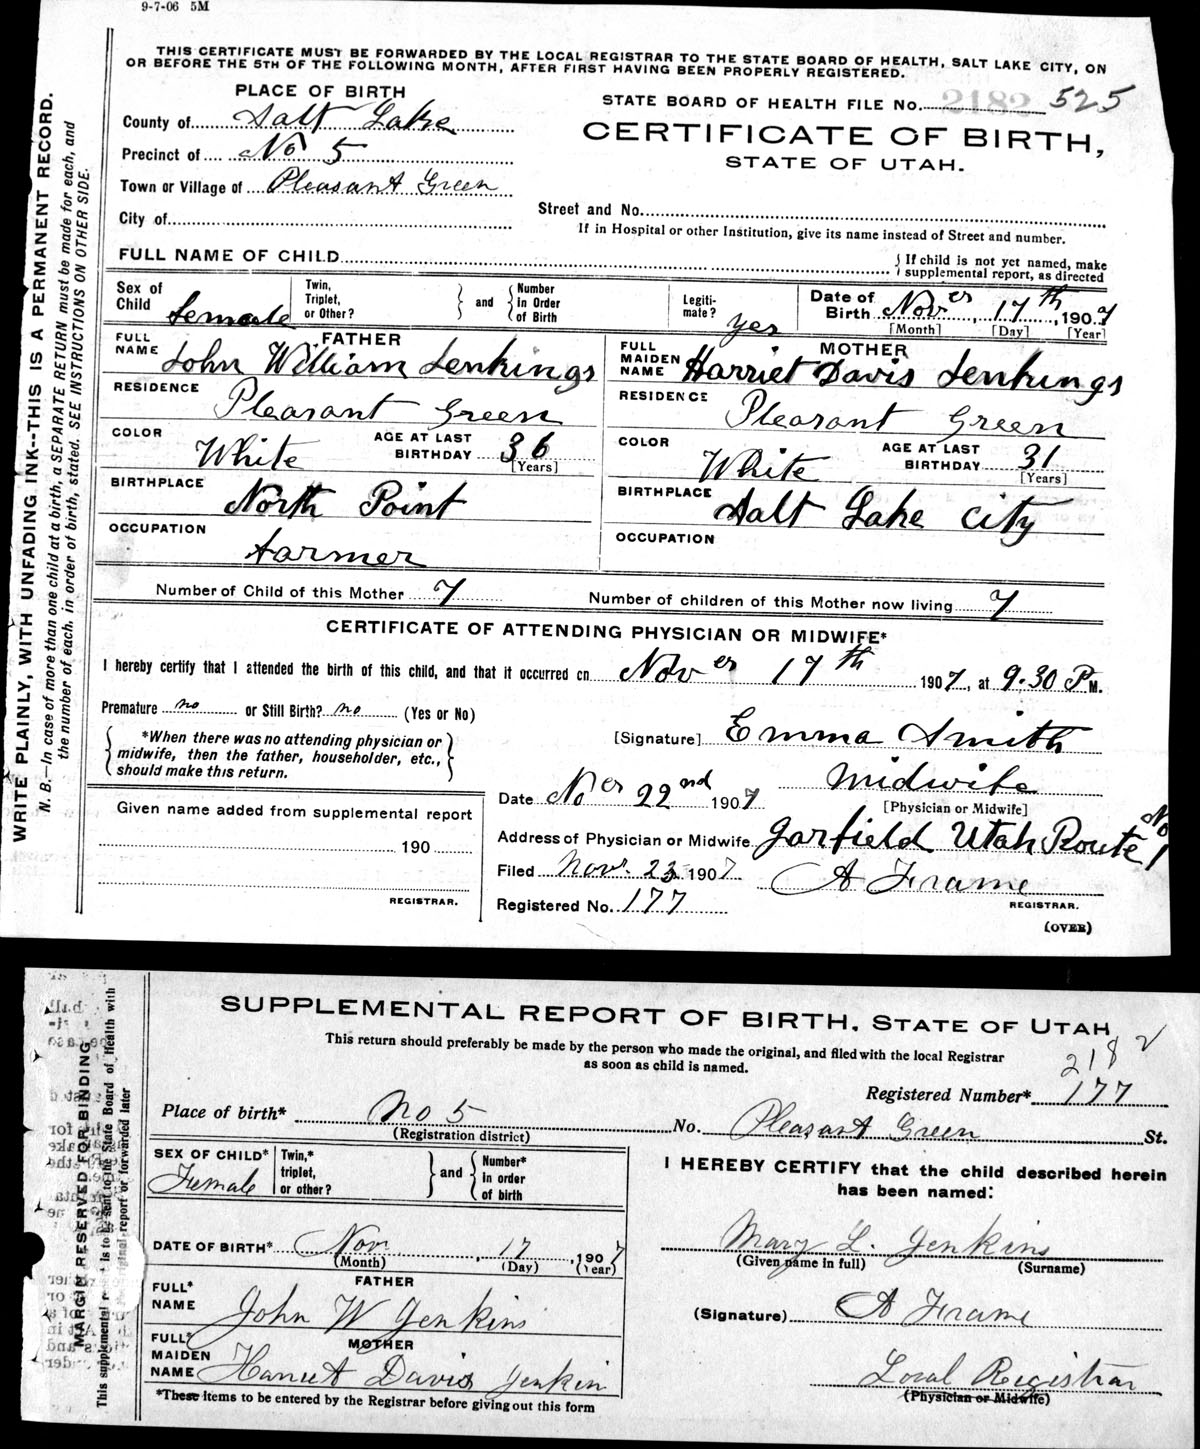 9-7-06 5M
THIS CERTIFICATE MUST BE FORWARDED BY THE LOCAL REGISTRAR TO THE STATE BOARD OF HEALTH, SALT LAKE CITY, ON
OR BEFORE THE 5TH OF THE FOLLOWING MONTH, AFTER FIRST HAVING BEEN PROPERLY REGISTERED.
WRITE PLAINLY, WITH UNFADING INK--THIS IS A PERMANENT RECORD.
N. B.—In case of more than one child at a birth, a SEPARATE RETURN must be made for each, and
the number of each, in order of birth, stated. SEE INSTRUCTIONS ON OTHER SIDE.
PLACE OF BIRTH
County of Salt Lake
Precinct of No 5
Town or Village of Pleasant Green
City of
STATE BOARD OF HEALTH FILE No. 2182 525
CERTIFICATE OF BIRTH,
STATE OF UTAH.
Street and No.
If in Hospital or other Institution, give its name instead of Street and number.
FULL NAME OF CHILD
{ If child is not yet named, make
supplemental report, as directed
Sex of Child Female
Twin, Triplet, or Other? } and { Number in Order of Birth
Legiti-mate? yes
Date of Birth Nover 17th, 1907
[Month] [Day] [Year]
FATHER
FULL NAME John William Jenkings
RESIDENCE Pleasant Green
COLOR White AGE AT LAST BIRTHDAY 36
[Years]
BIRTHPLACE North Point
OCCUPATION Farmer
MOTHER
FULL MAIDEN NAME Harriet Davis Jenkings
RESIDENCE Pleasant Green
COLOR White AGE AT LAST BIRTHDAY 31
[Years]
BIRTHPLACE Salt Lake City
OCCUPATION
Number of Child of this Mother 7 Number of children of this Mother now living 7
CERTIFICATE OF ATTENDING PHYSICIAN OR MIDWIFE*
I hereby certify that I attended the birth of this child, and that it occurred on Nover 17th 1907, at 9.30 P M.
Premature no or Still Birth? no (Yes or No)
{ *When there was no attending physician or
midwife, then the father, householder, etc.,
should make this return. }
[Signature] Emma Smith
Midwife
[Physician or Midwife]
Date Nover 22nd 1907
Given name added from supplemental report
190
REGISTRAR.
Address of Physician or Midwife Garfield Utah Route No 1
Filed Nov. 23 1907 A Frame
REGISTRAR.
Registered No. 177
(OVER)
SUPPLEMENTAL REPORT OF BIRTH, STATE OF UTAH
This return should preferably be made by the person who made the original, and filed with the local Registrar
as soon as child is named.
2182
Registered Number* 177
MARGIN RESERVED FOR BINDING
Place of birth* No 5 No. Pleasant Green St.
(Registration district)
SEX OF CHILD* Female
Twin,* triplet, or other? } and { Number* in order of birth
DATE OF BIRTH* Nov 17, 1907
(Month) (Day) (Year)
FATHER
FULL* NAME John W Jenkins
MOTHER
FULL* MAIDEN NAME Harriet Davis Jenkin
*These items to be entered by the Registrar before giving out this form
I HEREBY CERTIFY that the child described herein
has been named:
Mary L. Jenkins
(Given name in full) (Surname)
(Signature) A Frame
Local Registrar
(Physician or Midwife)